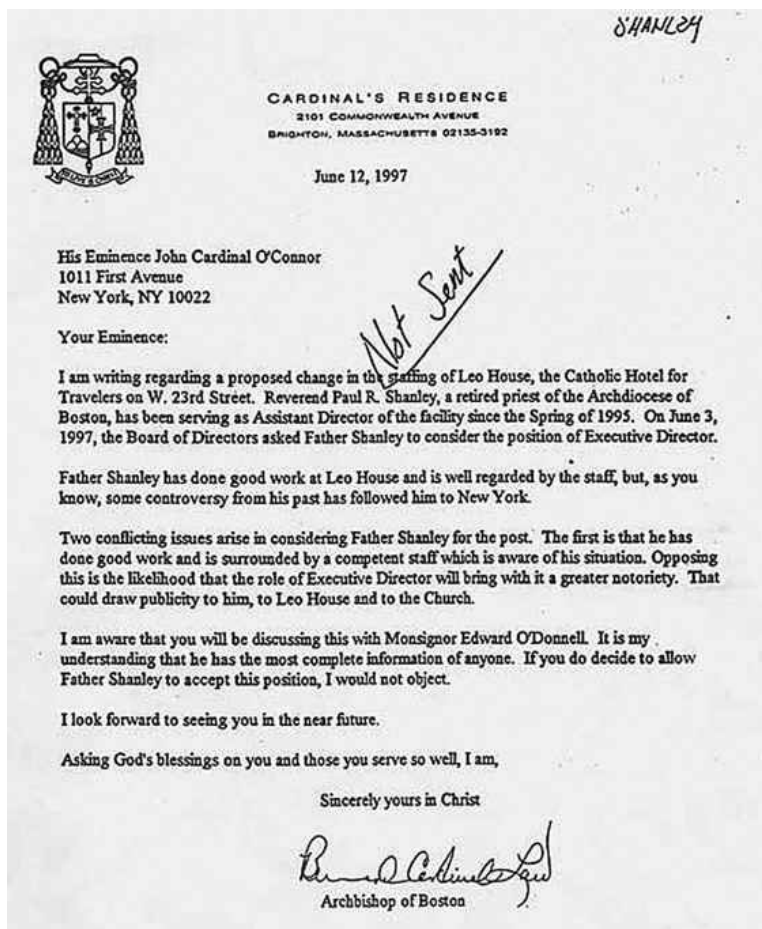 SHANLEY
CARDINAL'S RESIDENCE
2101 COMMONWEALTH AVENUE
BRIGHTON, MASSACHUSETTS 02135-3192
June 12, 1997
His Eminence John Cardinal O'Connor
1011 First Avenue
New York, NY 10022
Not Sent
Your Eminence:
I am writing regarding a proposed change in the staffing of Leo House, the Catholic Hotel for
Travelers on W. 23rd Street. Reverend Paul R. Shanley, a retired priest of the Archdiocese of
Boston, has been serving as Assistant Director of the facility since the Spring of 1995. On June 3,
1997, the Board of Directors asked Father Shanley to consider the position of Executive Director.
Father Shanley has done good work at Leo House and is well regarded by the staff, but, as you
know, some controversy from his past has followed him to New York.
Two conflicting issues arise in considering Father Shanley for the post. The first is that he has
done good work and is surrounded by a competent staff which is aware of his situation. Opposing
this is the likelihood that the role of Executive Director will bring with it a greater notoriety. That
could draw publicity to him, to Leo House and to the Church.
I am aware that you will be discussing this with Monsignor Edward O'Donnell. It is my
understanding that he has the most complete information of anyone. If you do decide to allow
Father Shanley to accept this position, I would not object.
I look forward to seeing you in the near future.
Asking God's blessings on you and those you serve so well, I am,
Sincerely yours in Christ
Bernard Cardinal Law
Archbishop of Boston